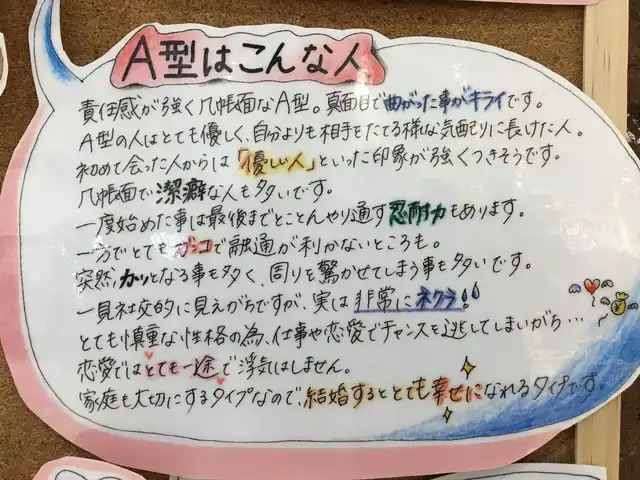 A型はこんな人
責任感が強く几帳面なA型。真面目で曲がった事がキライです。
A型の人はとても優しく、自分よりも相手をたてる様な気配りに長けた人。
初めて会った人からは「優しい人」といった印象が強くつきそうです。
几帳面で潔癖な人も多いです。
一度始めた事は最後までとことんやり通す忍耐力もあります。
一方でとてもガンコで融通が利かないところも。
突然、カッとなる事も多く、周りを驚かせてしまう事も多いです。
一見社交的に見えがちですが、実は非常にネクラ!
とても慎重な性格の為、仕事や恋愛でチャンスを逃してしまいがち…
恋愛ではとても一途で浮気はしません。
家庭も大切にするタイプなので、結婚するととても幸せになれるタイプです。